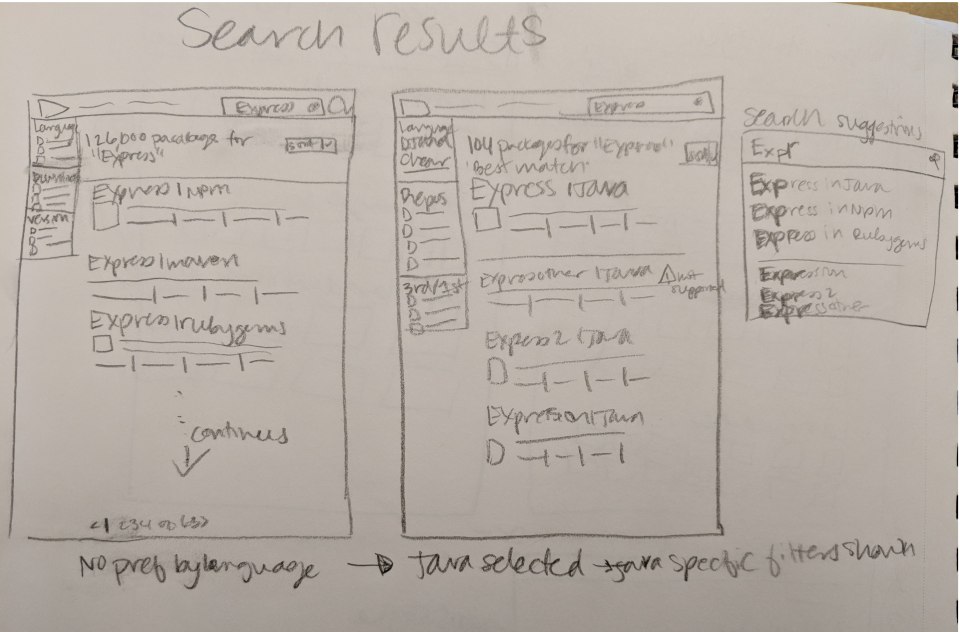 Search results
Express
Language
126,000 pacakage for
"Express"
sort
Version
Express | Npm
Express | maven
Express | rubygems
continues
<1 234
No pref by language
Express
Language
Java
Clear
104 packages for "Express"
"Best match"
sort
Express | Java
Repos
3rd/1st
Expressother | Java
not
supported
Express2 | Java
Expression | Java
Java selected → Java specific filters shown
Search suggestions
Expr
Express in Java
Express in Npm
Express in Rubygems
Expression
Express2
Expressother